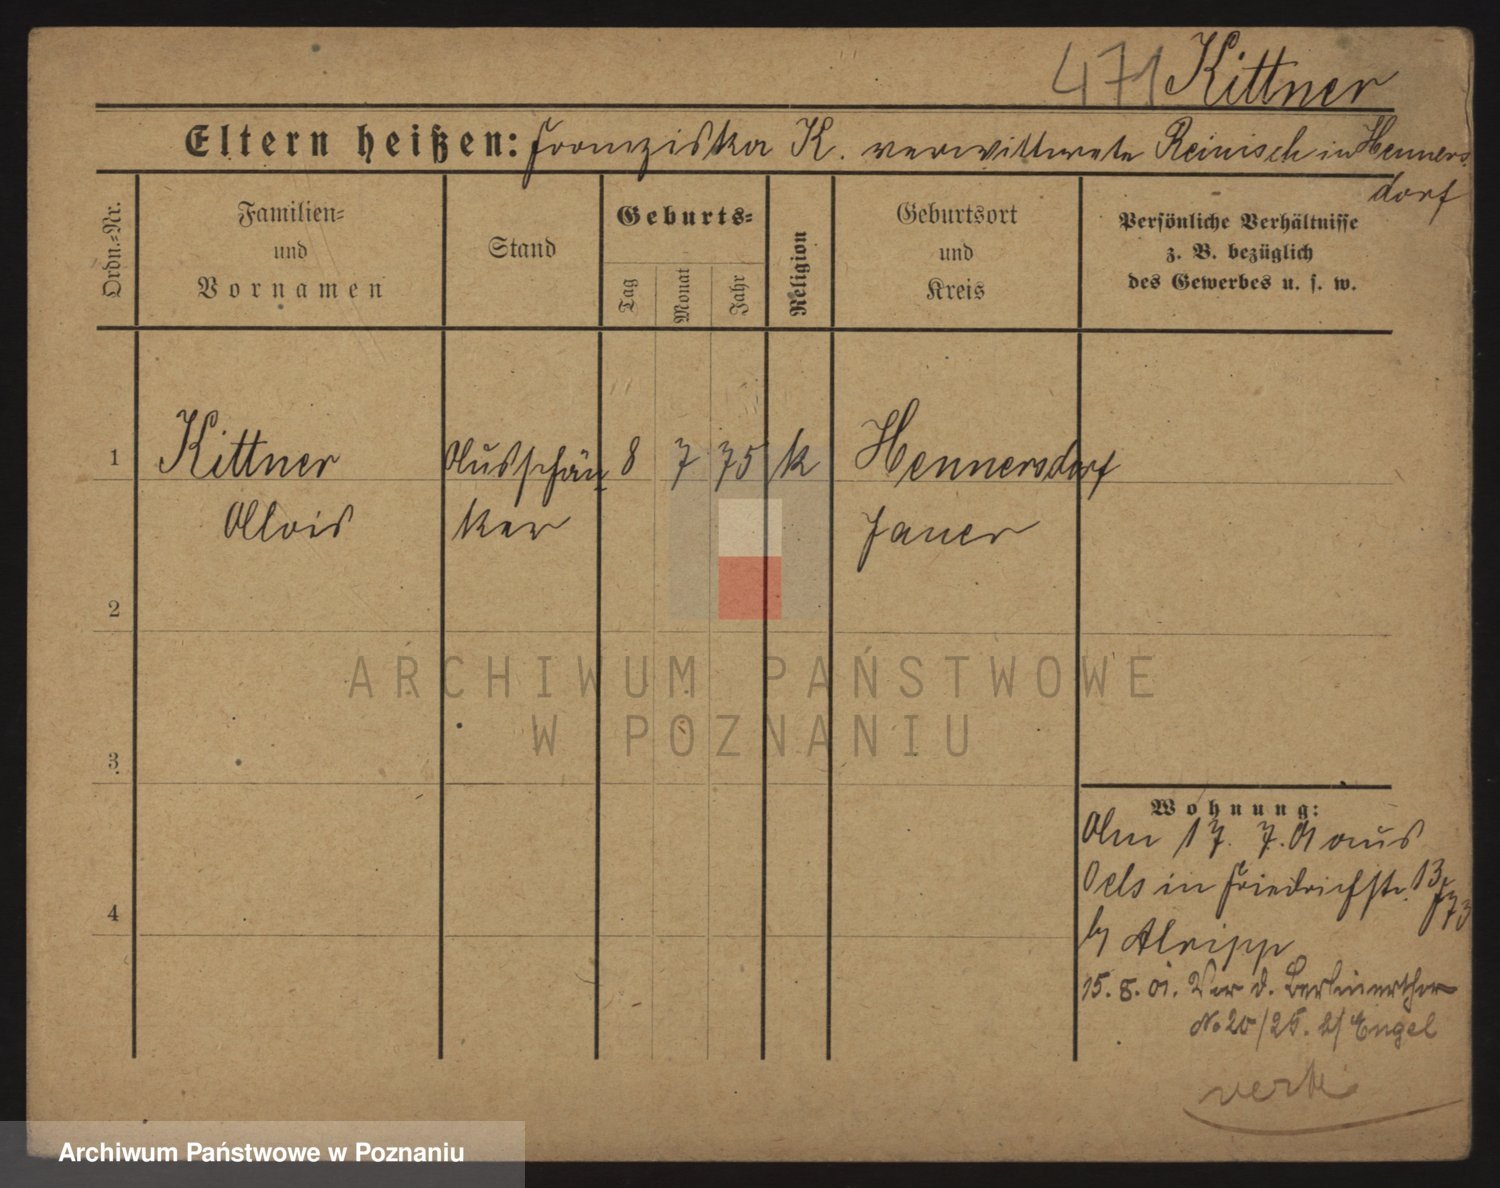 471 Kittner
Eltern heißen: Franziska K. verwittwete Reinisch in Henners
dorf
Ordn.=Nr.
Familien=
und
Vornamen
Stand
Geburts=
Tag
Monat
Jahr
Religion
Geburtsort
und
Kreis
Persönliche Verhältnisse
z. B. bezüglich
des Gewerbes u. s. w.
1 Kittner Ausschän 8 7 75 k Hennersdorf
Alois ker Jauer
2
3
4
Wohnung:
Am 17. 7. 01 aus
Oels in Friedrichstr. 13
b/
15. 8. 01. Vor d. Berlinerthor
No 20/25. b/ Engel
ARCHIWUM PAŃSTWOWE
W POZNANIU
Archiwum Państwowe w Poznaniu